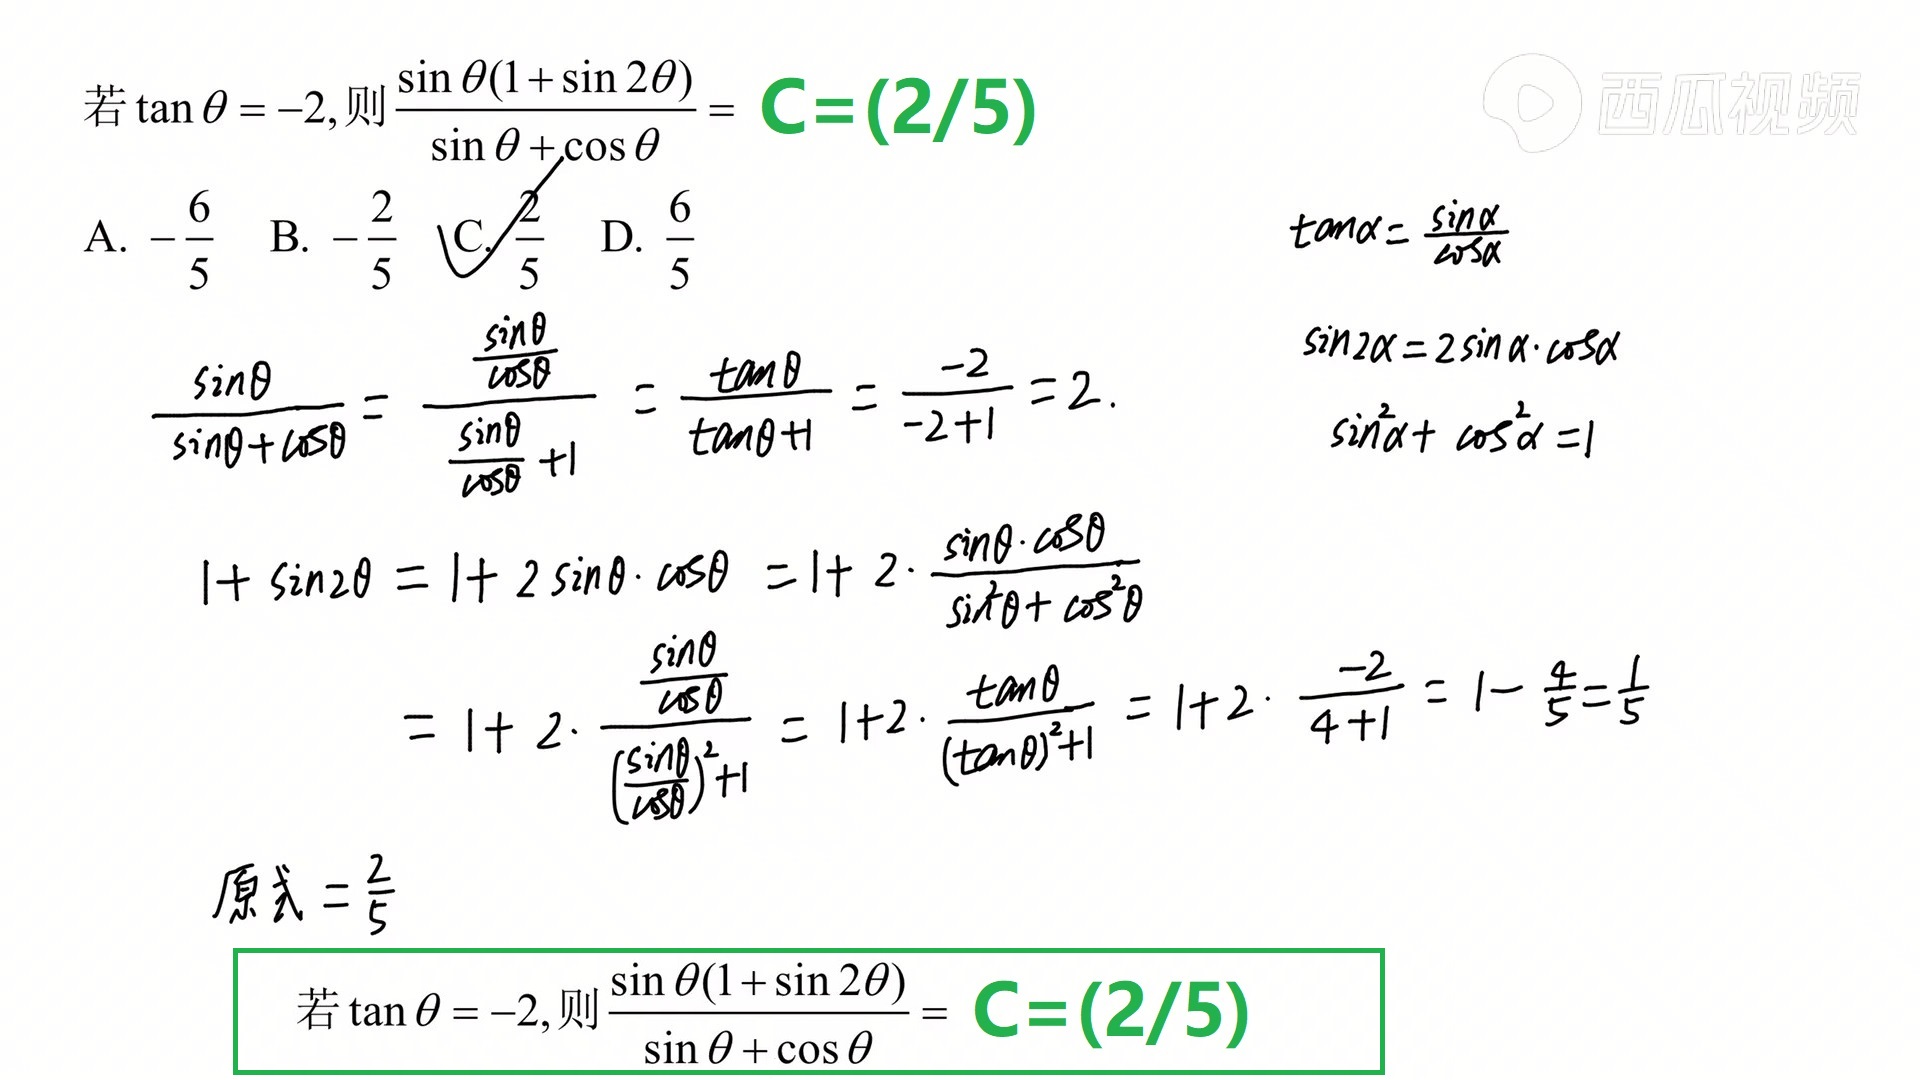 西瓜视频
若 tan θ = −2, 则 \frac{sin θ(1+sin 2θ)}{sin θ + cos θ} = C=(2/5)
A. −\frac{6}{5} B. −\frac{2}{5} C. \frac{2}{5} D. \frac{6}{5}
tanα = \frac{sinα}{cosα}
sin2α = 2sinα·cosα
sin²α + cos²α = 1
\frac{sinθ}{sinθ+cosθ} = \frac{\frac{sinθ}{cosθ}}{\frac{sinθ}{cosθ}+1} = \frac{tanθ}{tanθ+1} = \frac{-2}{-2+1} = 2.
1+ sin2θ = 1+ 2sinθ·cosθ = 1+ 2·\frac{sinθ·cosθ}{sin²θ+cos²θ}
= 1+ 2·\frac{\frac{sinθ}{cosθ}}{(\frac{sinθ}{cosθ})²+1} = 1+2·\frac{tanθ}{(tanθ)²+1} = 1+2·\frac{-2}{4+1} = 1−\frac{4}{5} = \frac{1}{5}
原式 = \frac{2}{5}
若 tan θ = −2, 则 \frac{sin θ(1+sin 2θ)}{sin θ + cos θ} = C=(2/5)